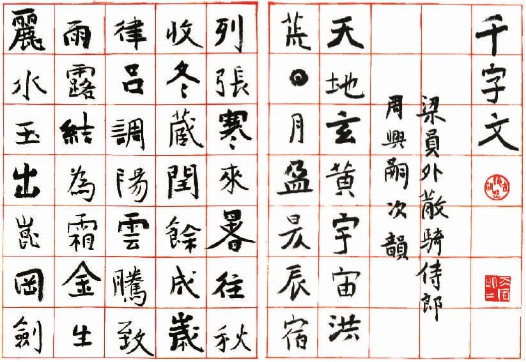 千字文
梁員外散騎侍郎
周興嗣次韻
天地玄黃宇宙洪
荒日月盈昃辰宿
列張寒來暑往秋
收冬藏閏餘成歲
律呂調陽雲騰致
雨露結為霜金生
麗水玉出崑岡劍